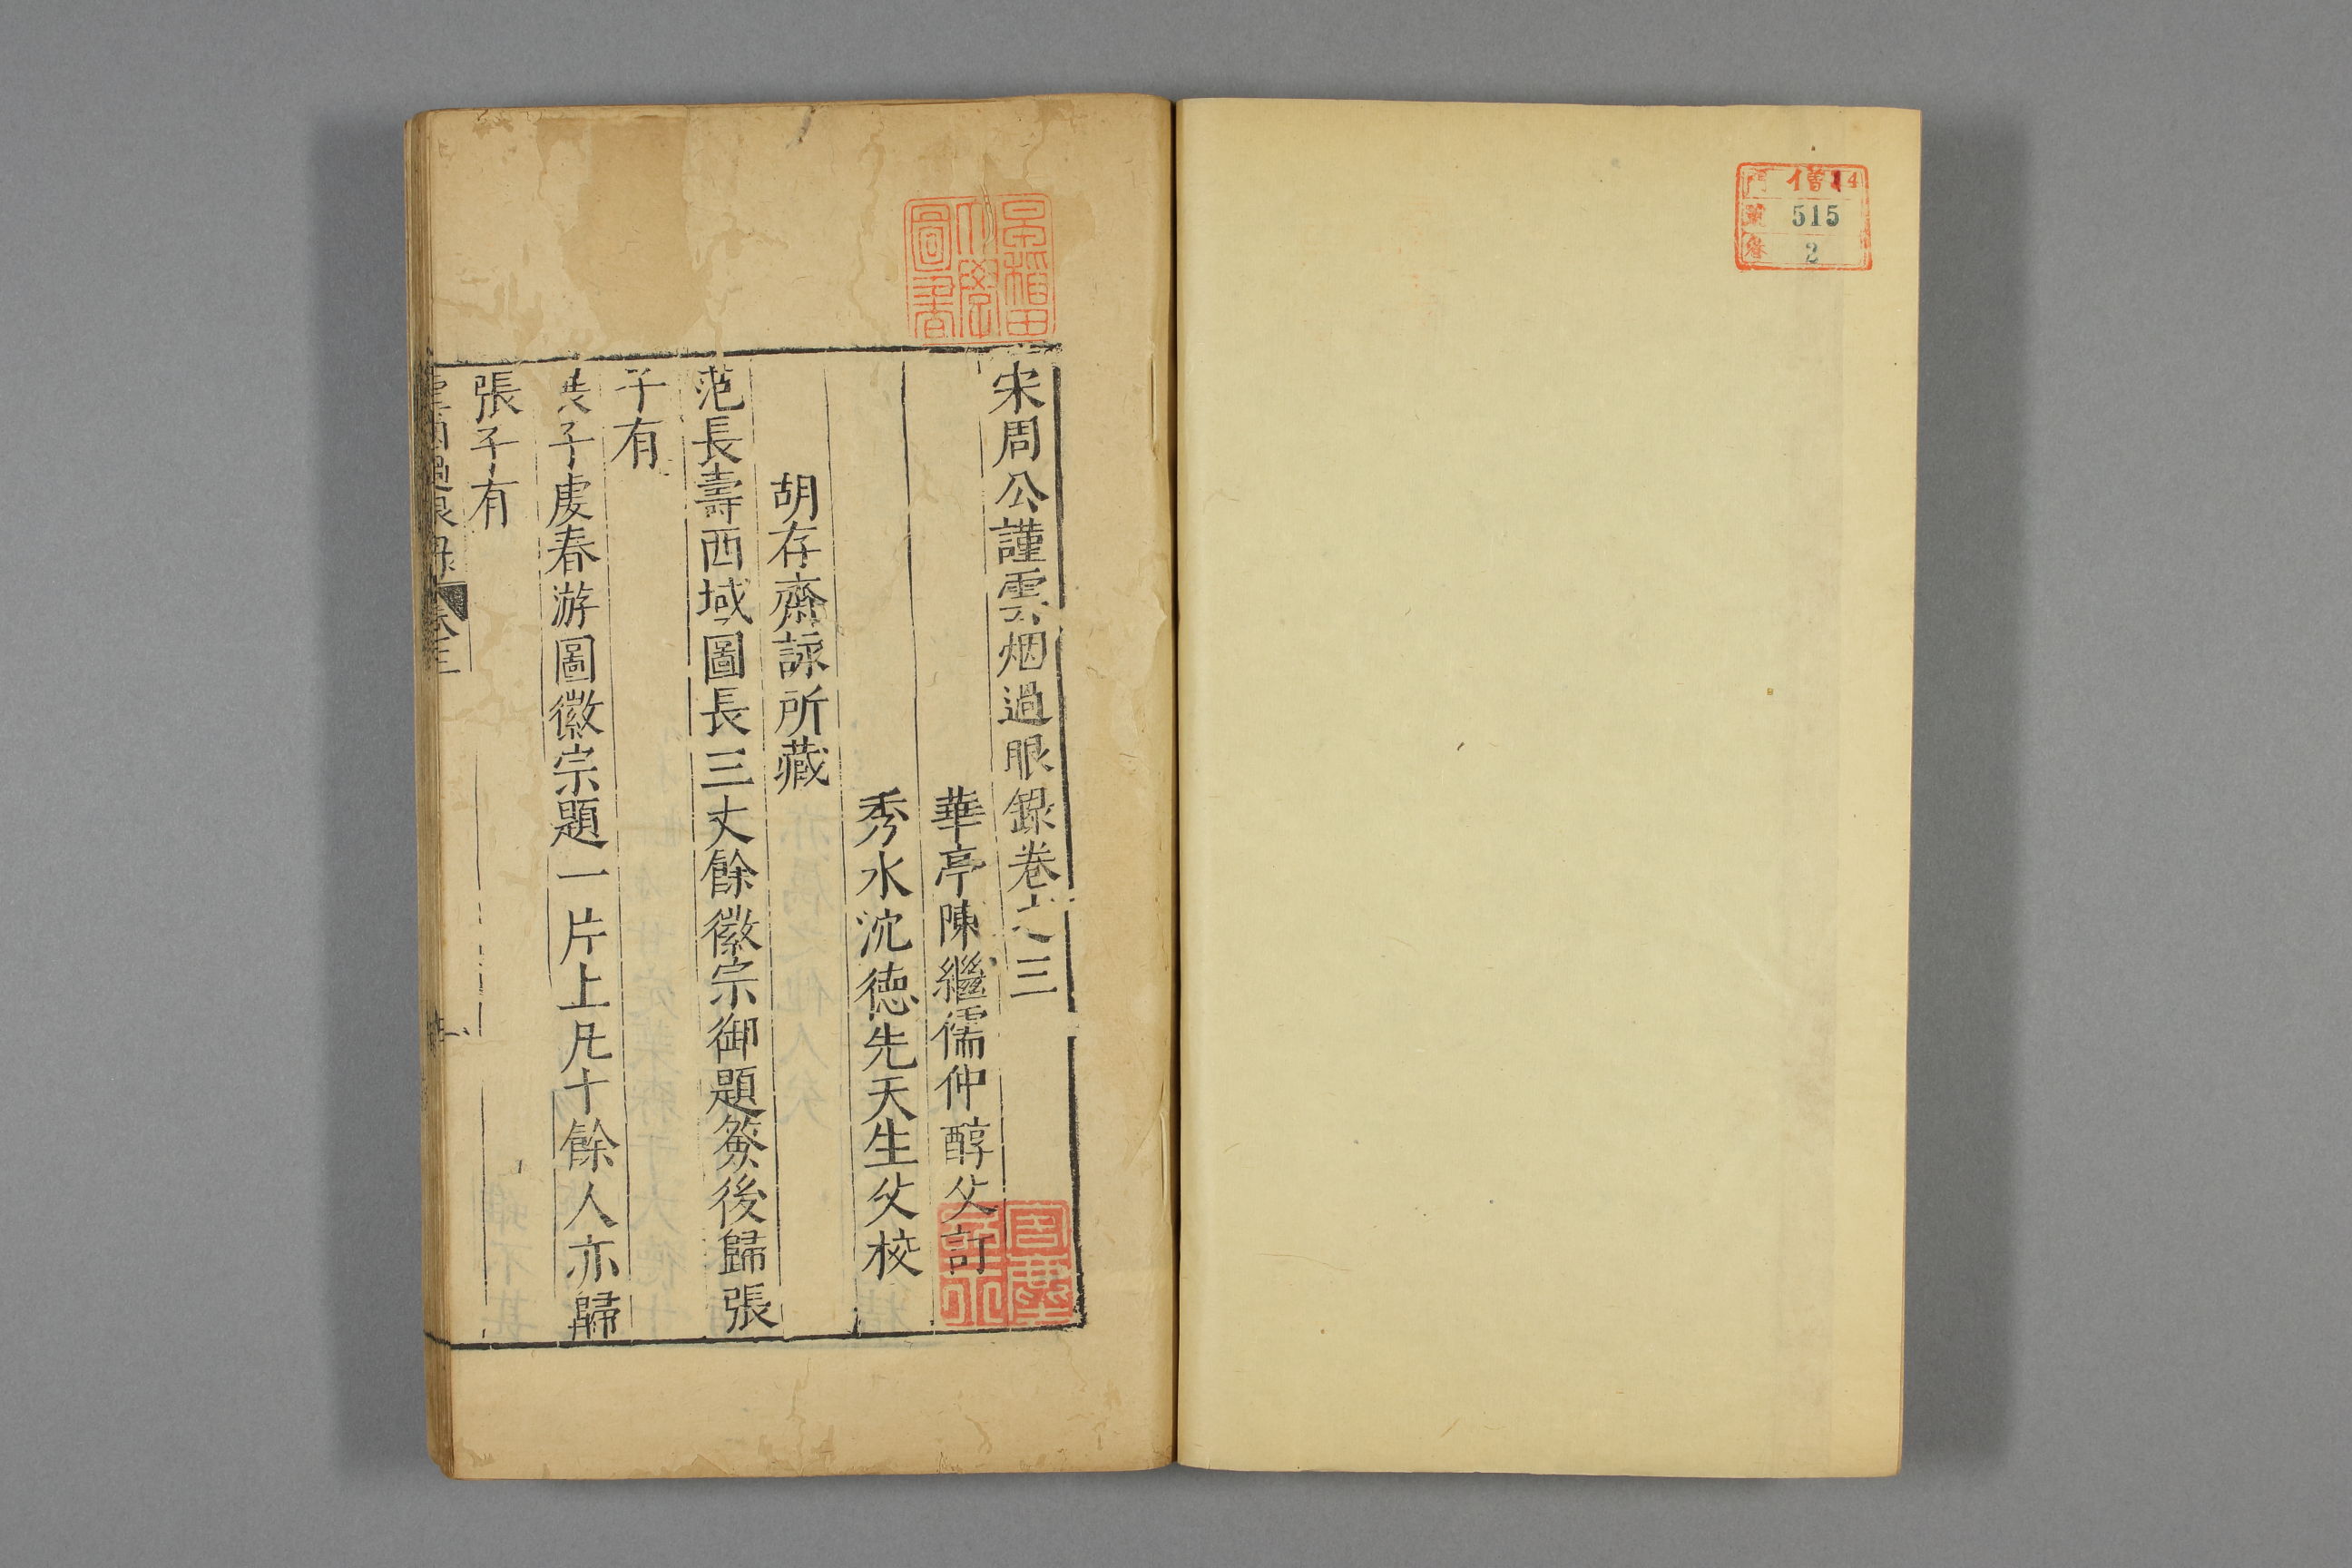 門 僧 14
號 515
卷 2
早稲田
大學
圖書
宋周公謹雲烟過眼錄卷之三
華亭陳繼儒仲醇父訂
秀水沈德先天生父校
胡存齋詠所藏
范長壽西域圖長三丈餘徽宗御題籤後歸張
子有
展子虔春游圖徽宗題一片上凡十餘人亦歸
張子有
雲烟過眼錄 卷三